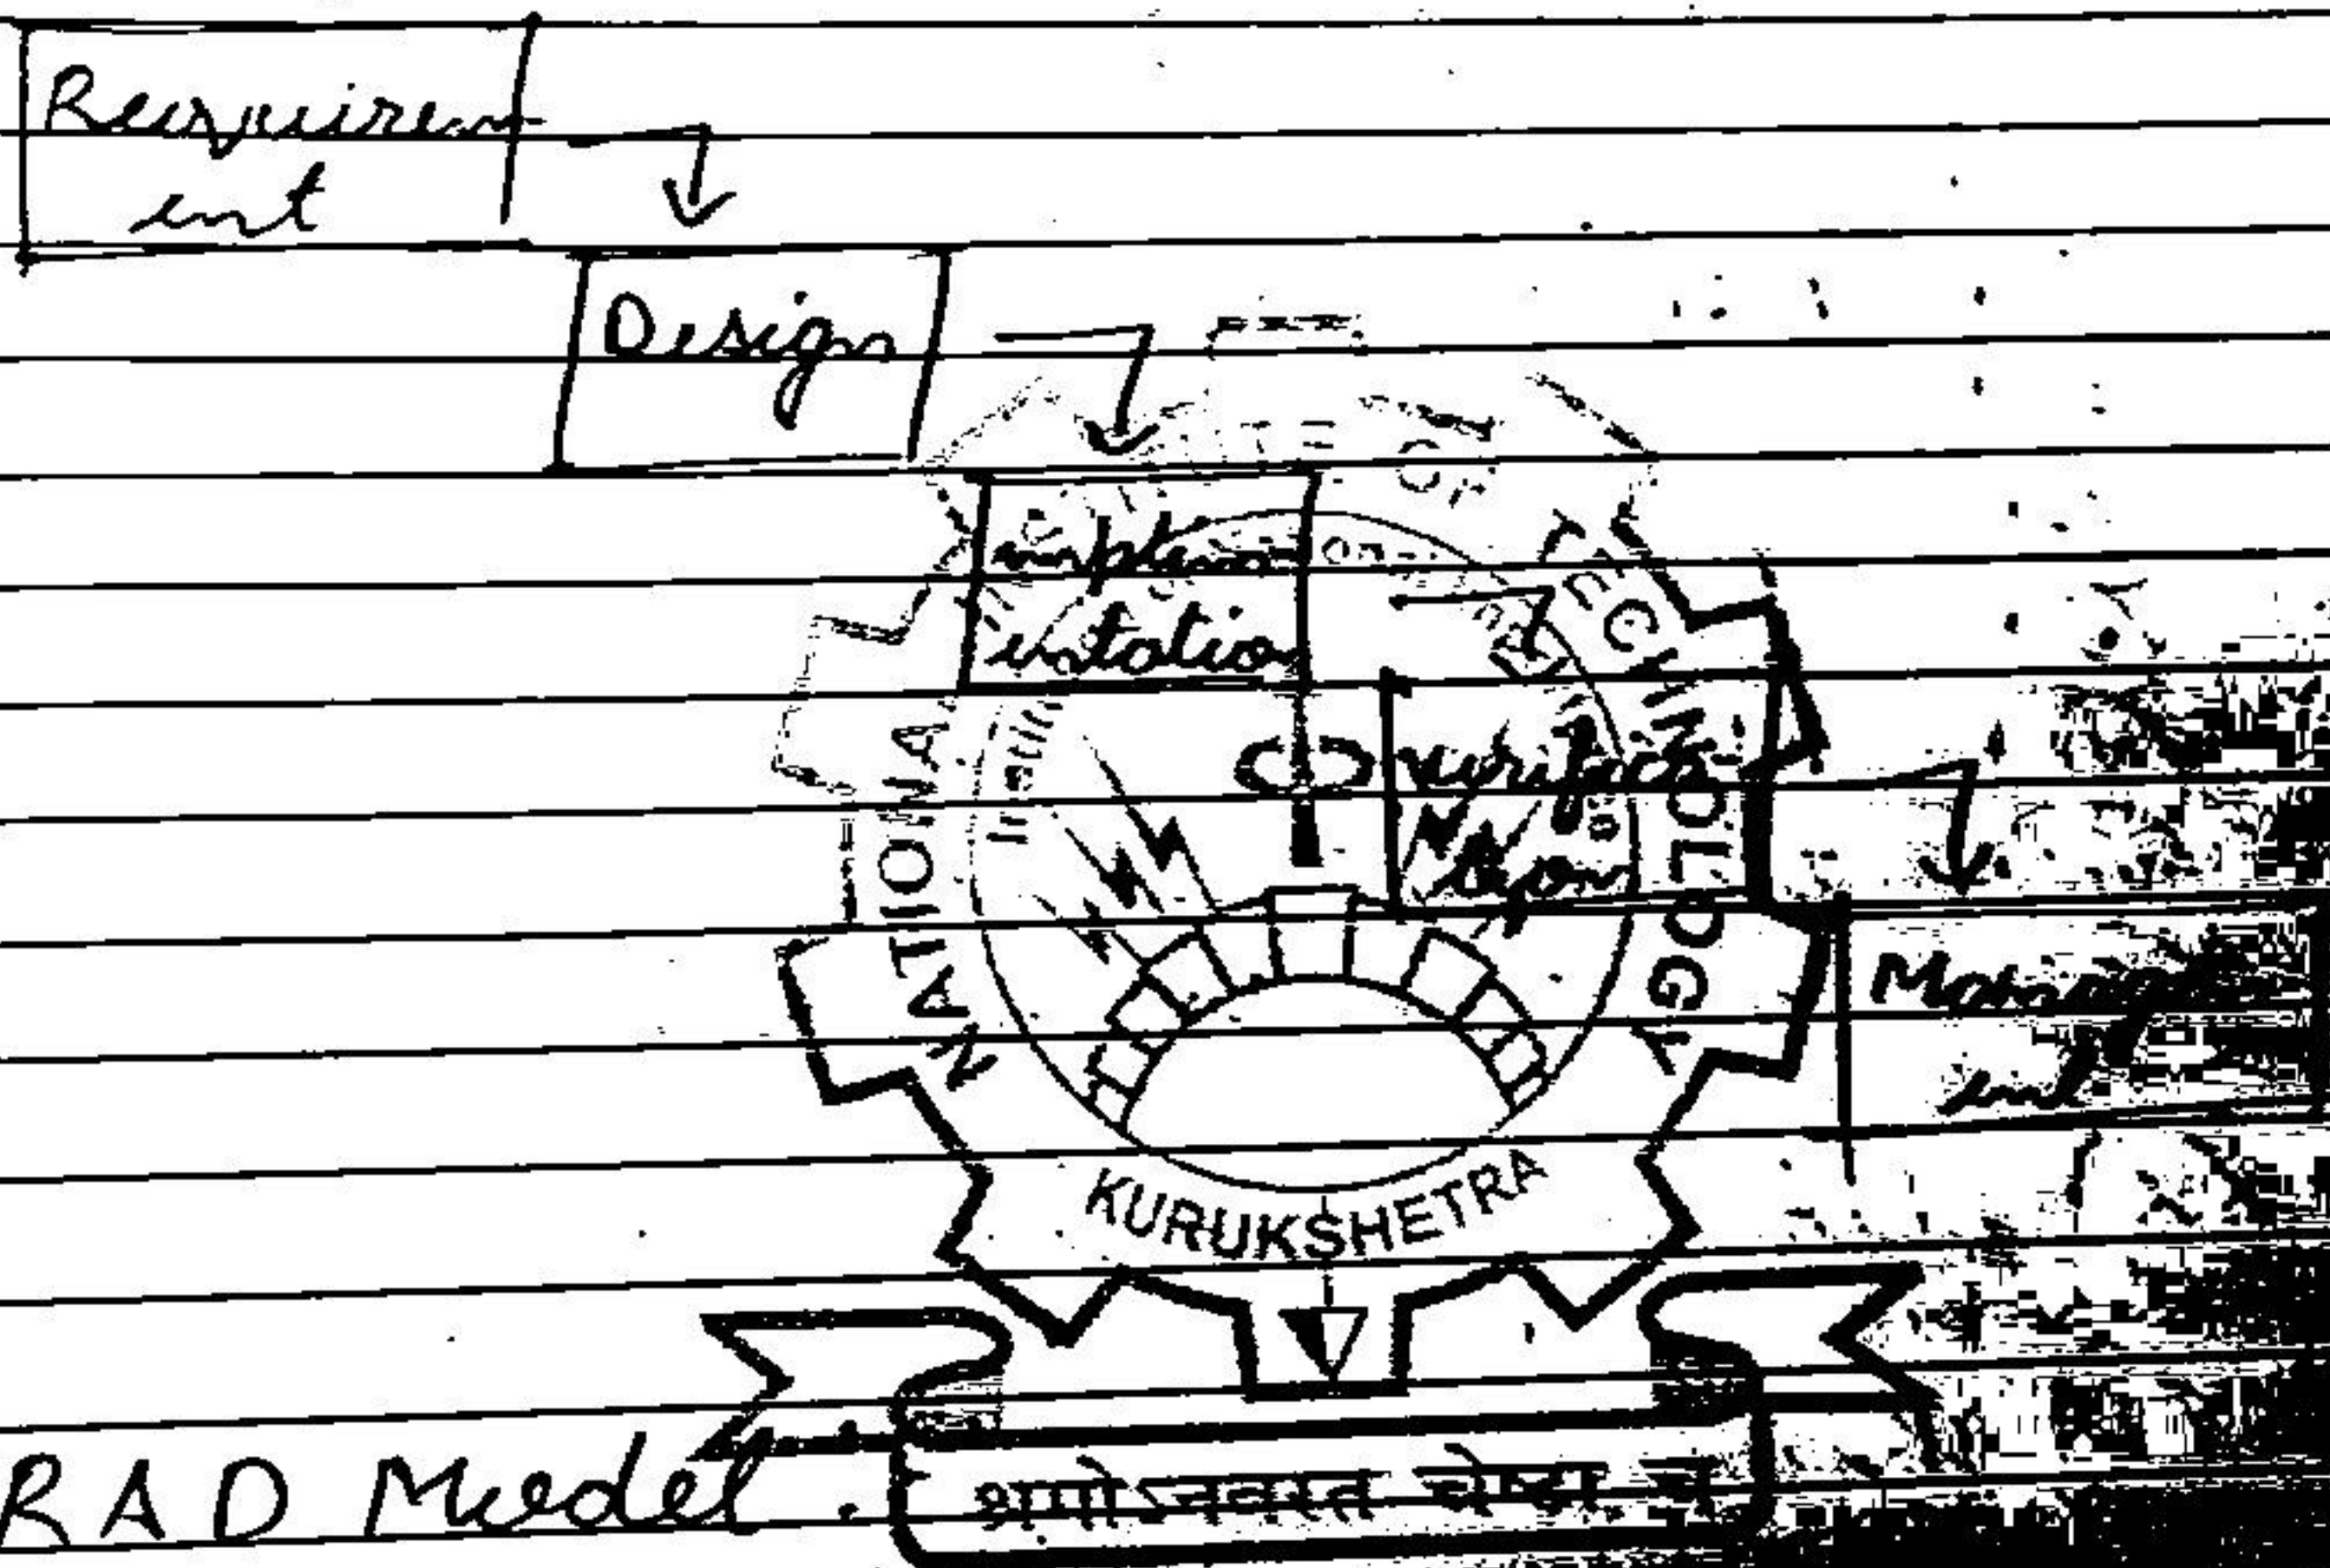 Requirem
ent
Design
implem
entation
verifica
tion
Manageme
ent
NATIONAL
INSTITUTE OF
TECHNOLOGY
KURUKSHETRA
RAD Model.
श्रमोऽनवरत चेष्टा च